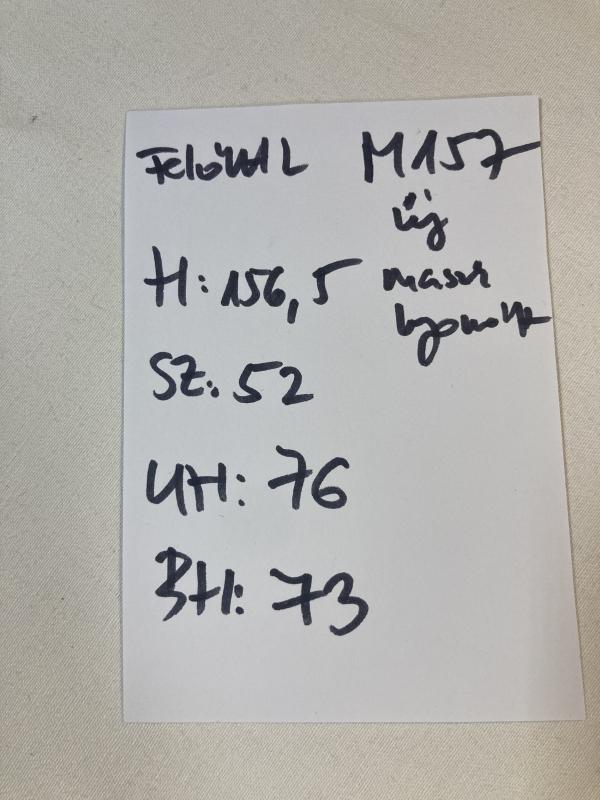 Felöltő L M157
új
H: 156,5
SZ: 52
UH: 76
BH: 73